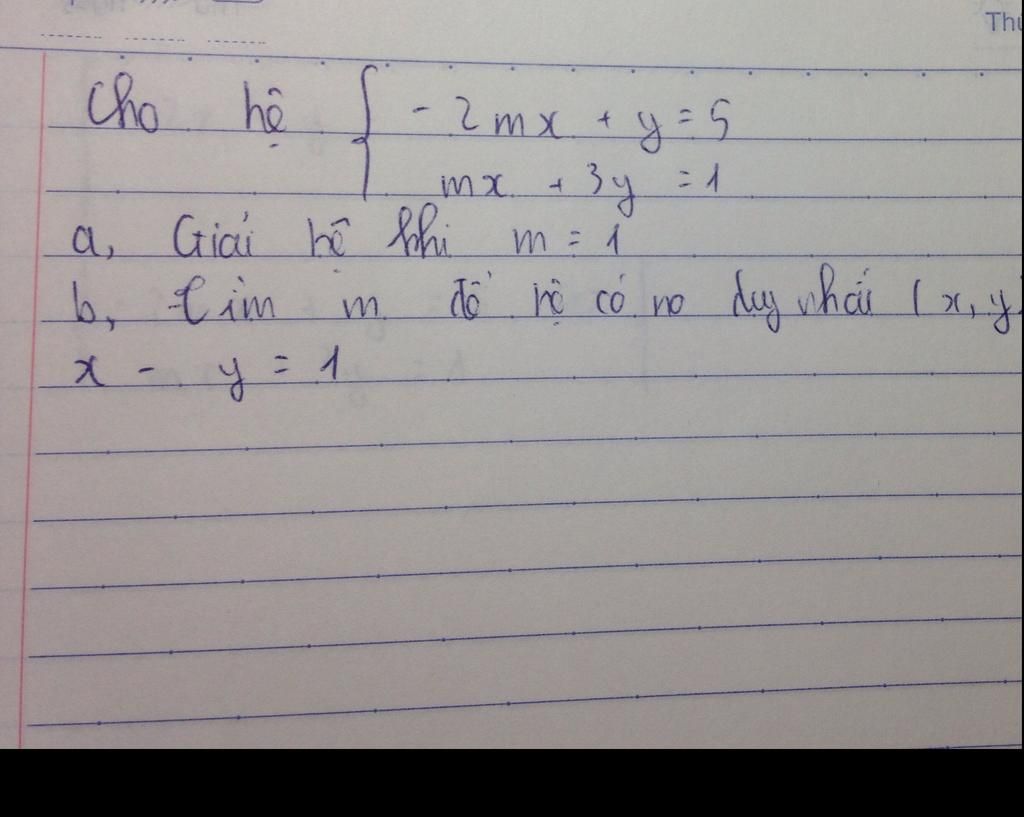 Thứ
Cho hệ { - 2mx + y = 5
mx + 3y = 1
a, Giải hệ khi m = 1
b, tìm m để hệ có no duy nhất (x, y)
x - y = 1